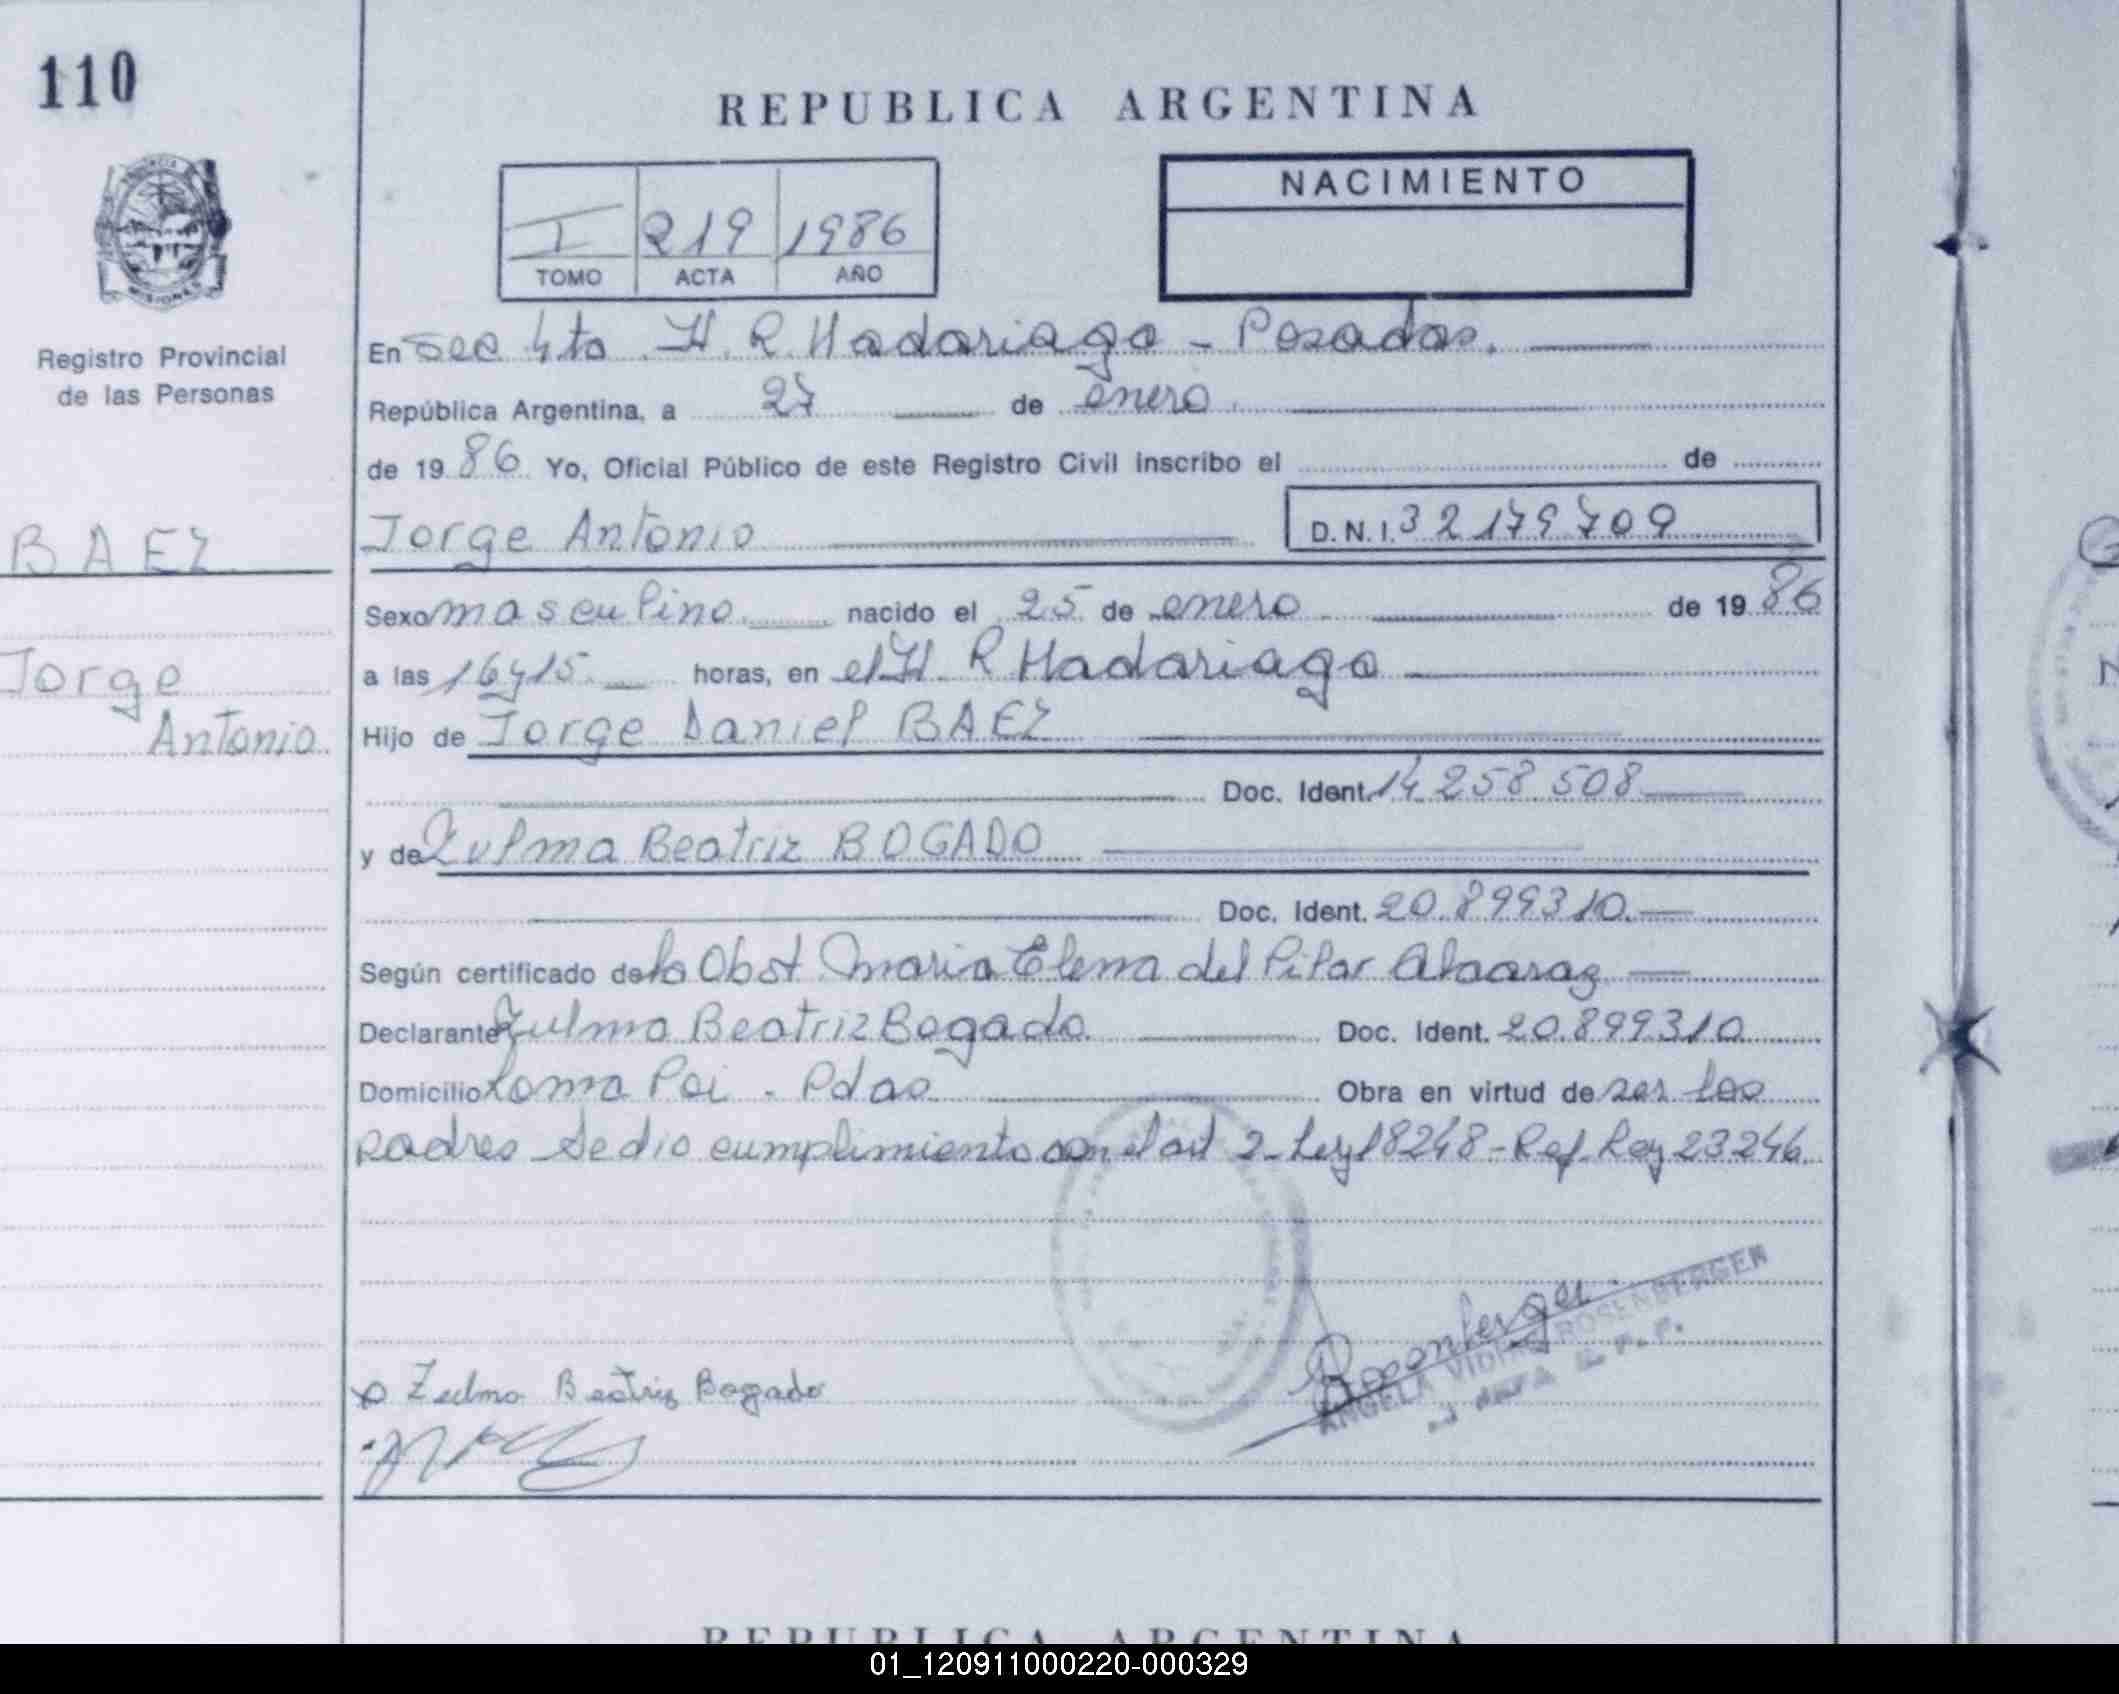 110
REPUBLICA ARGENTINA
NACIMIENTO
I 219 1986
TOMO ACTA AÑO
MISIONES
Registro Provincial
de las Personas
En Sec 4ta H. R. Madariaga - Posadas.
República Argentina, a 27 de enero
de 1986 Yo, Oficial Público de este Registro Civil inscribo el de
BAEZ
Jorge Antonio D.N.I. 32179709
Sexo masculino nacido el 25 de enero de 1986
Jorge
a las 16 y 15 horas, en el H. R Madariaga
Antonio
Hijo de Jorge Daniel BAEZ
Doc. Ident. 14 258 508
y de Zulma Beatriz BOGADO
Doc. Ident. 20.899310
Según certificado de la Obst Maria Elena del Pilar
Declarante Zulma Beatriz Bogado Doc. Ident. 20.899310
Domicilio Loma Poi - Pdas Obra en virtud de ser los
padres Se dio cumplimiento con el art 2 - Ley 18248 - Ref. Ley 23246
ROSENBERGER
ANGELA
Zulma Beatriz Bogado
REPUBLICA ARGENTINA
01_120911000220-000329